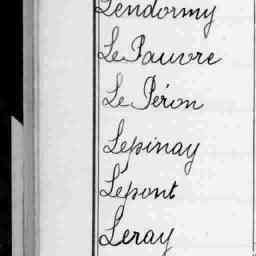 Lendormy
Le Pauvre
Le Péron
Lepinay
Lepont
Leray